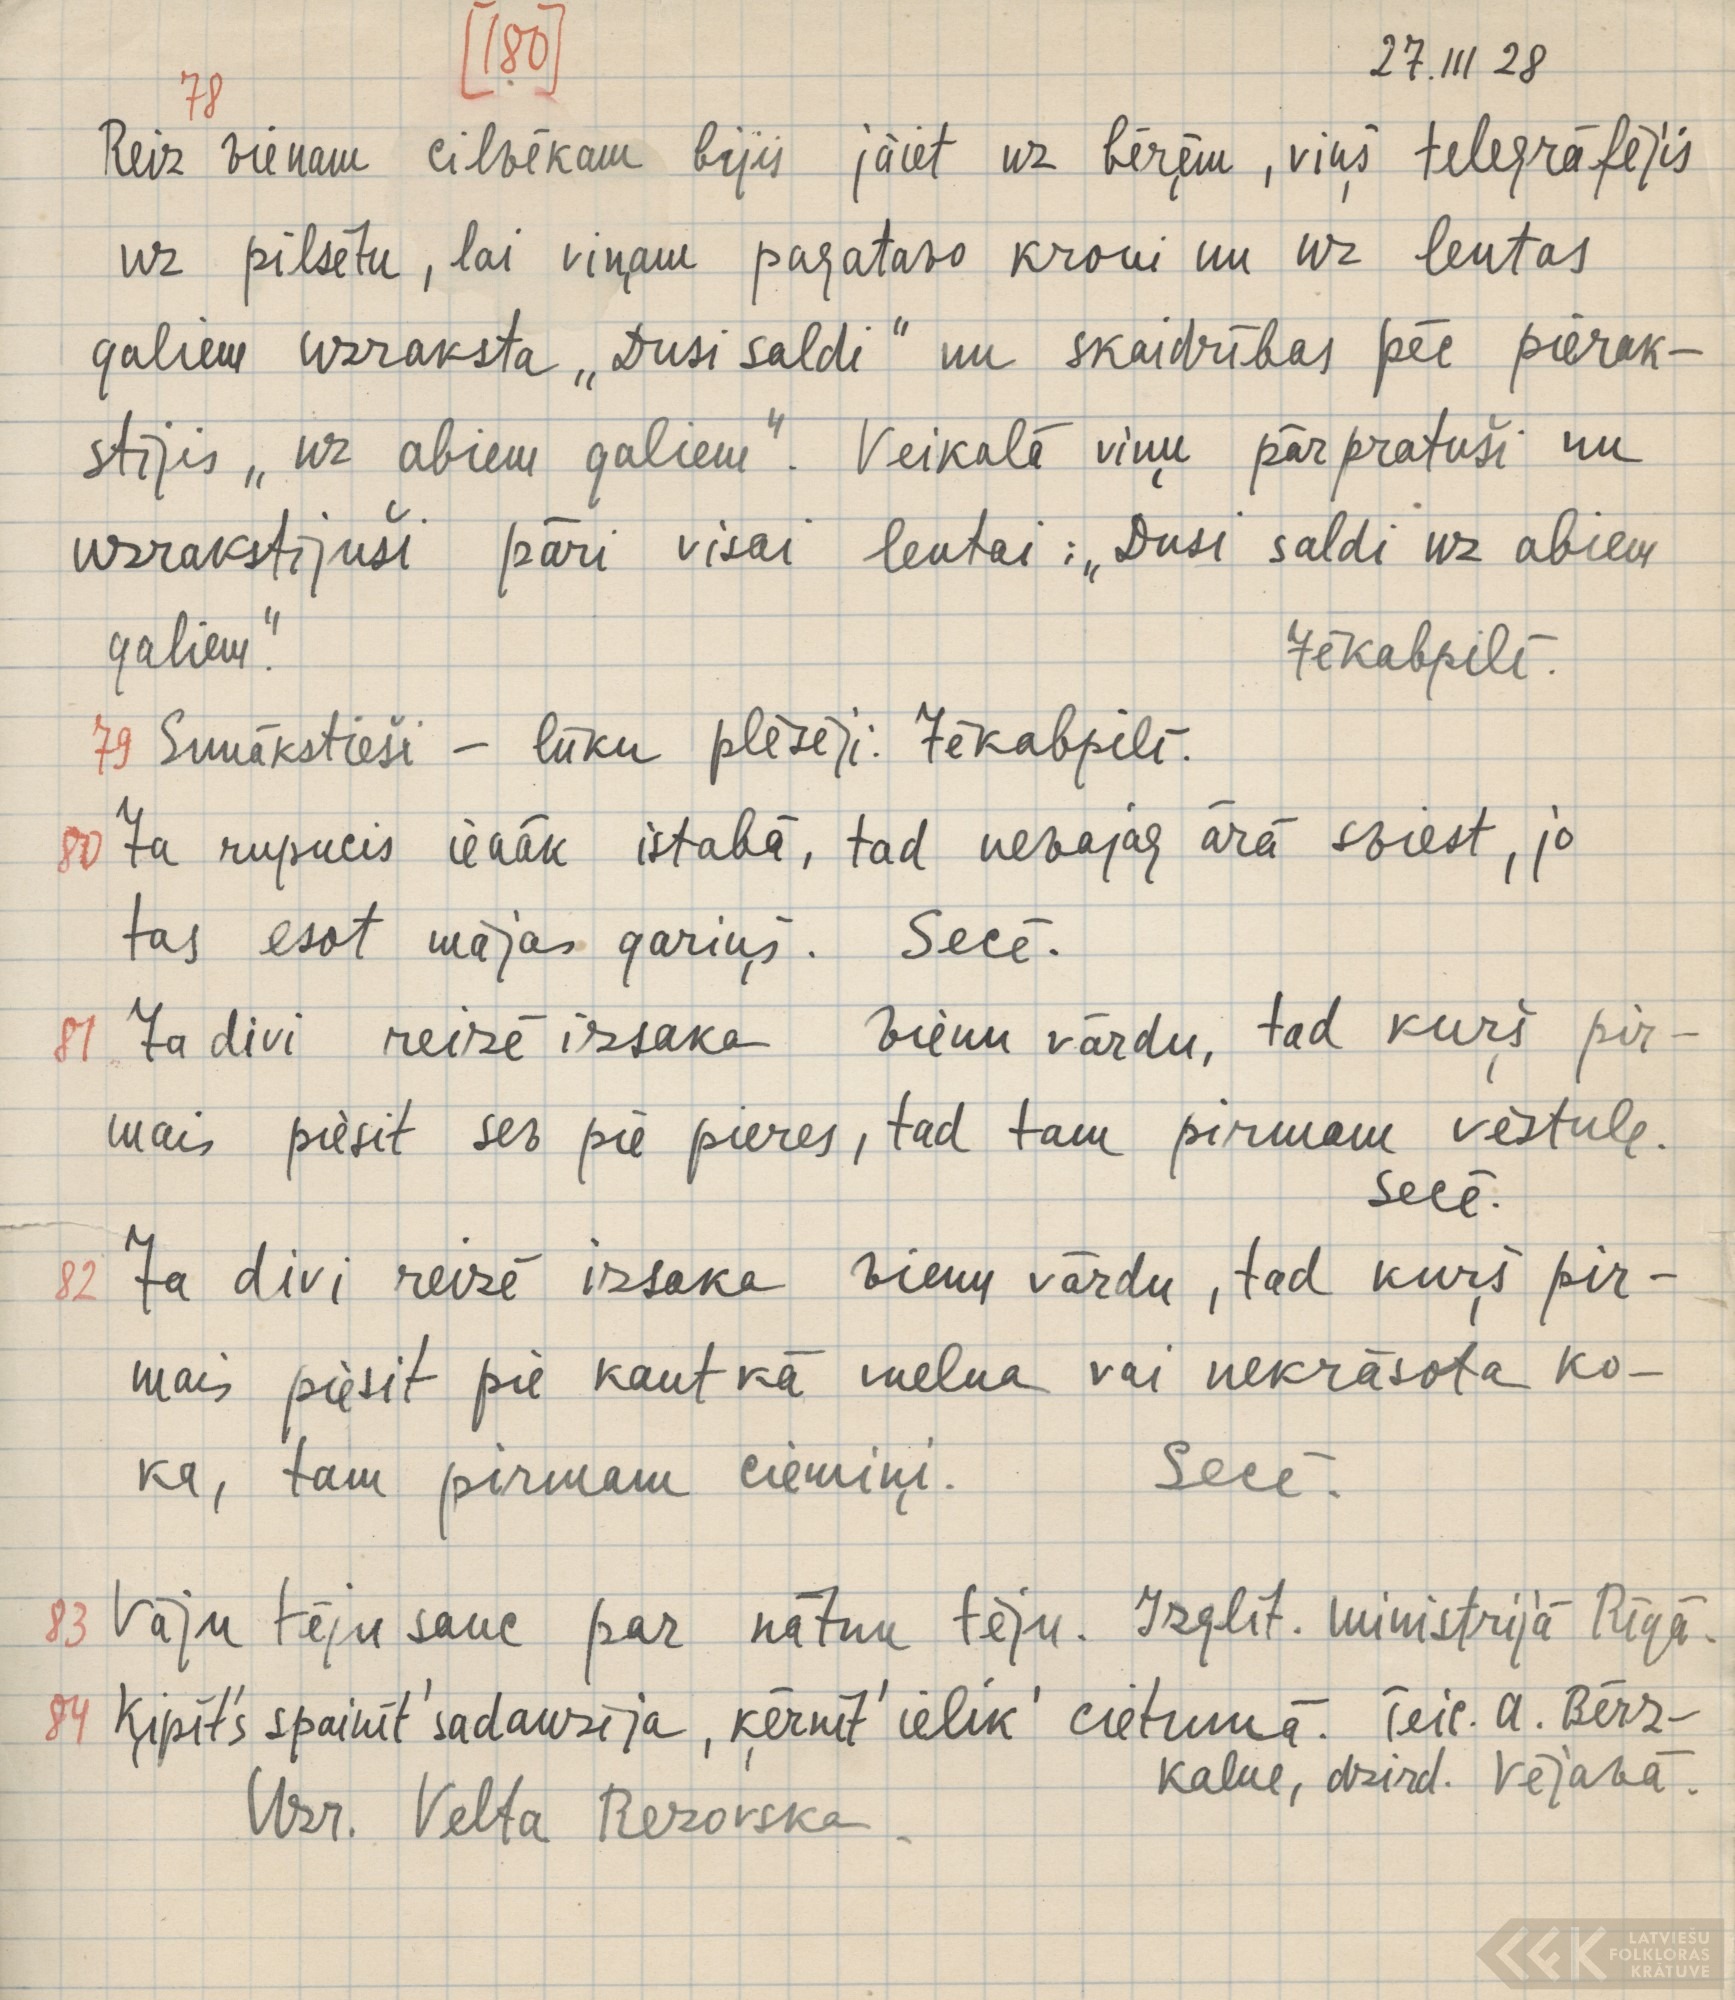 [180]
27.III 28
78
Reiz vienam cilvēkam bijis jāiet uz bēŗēm, viņš telegrāfējis
uz pilsētu, lai viņam pagatavo kroni un uz lentas
galiem uzraksta „Dusi saldi" un skaidrības pēc pierak-
stījis „uz abiem galiem". Veikalā viņu pārpratuši un
uzrakstījuši pāri visai lentai: „Dusi saldi uz abiem
galiem". Jēkabpilī.
79 Sunākstieši – lūku plēsēji. Jēkabpilī.
80 Ja rupucis ienāk istabā, tad nevajag ārā sviest, jo
tas esot mājas gariņš. Secē.
81 Ja divi reizē izsaka vienu vārdu, tad kuŗš pir-
mais piesit sev pie pieres, tad tam pirmam vēstule.
Secē.
82 Ja divi reizē izsaka vienu vārdu, tad kuŗš pir-
mais piesit pie kaut kā melna vai nekrāsota ko-
ka, tam pirmam ciemiņi. Secē.
83 Vāju tēju sauc par nātnu tēju. Izglīt. ministrijā Rīgā.
84 Ķipīt's spainīt' sadauzīja, ķērnīt' ielik' cietumā. Teic. A. Bērz-
kalne, dzird. Vējavā.
Uzr. Velta Rezovska.
LATVIEŠU
FOLKLORAS
KRĀTUVE